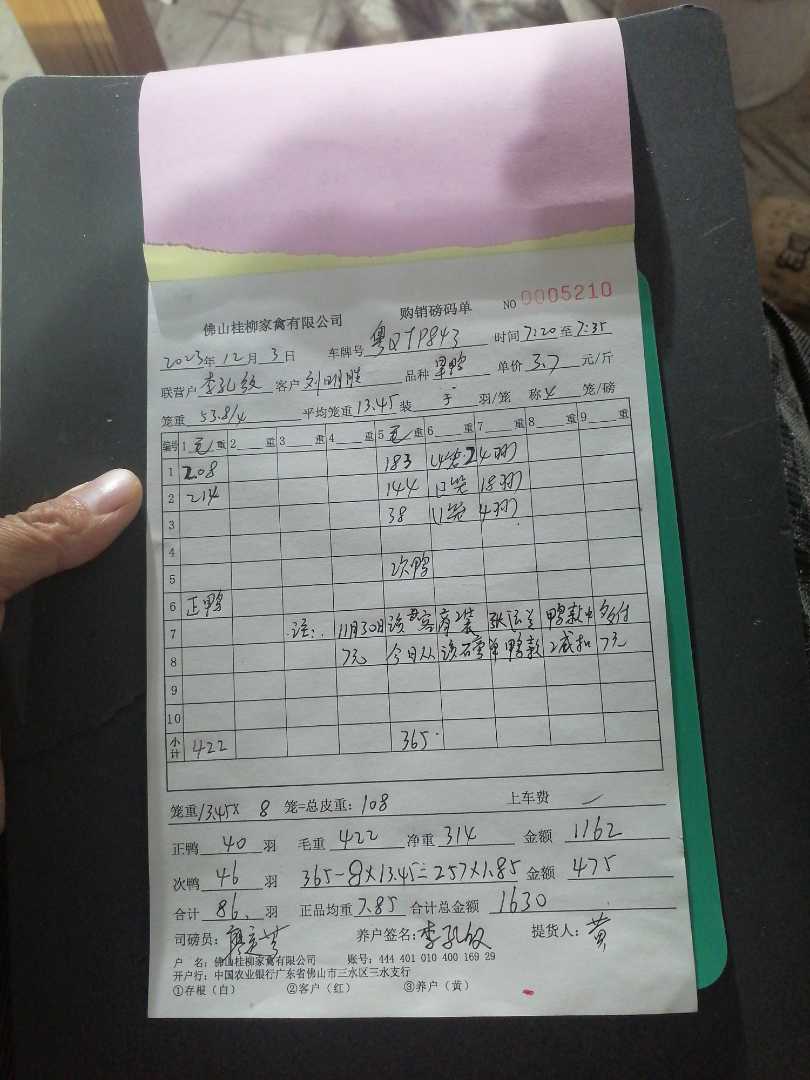 佛山桂柳家禽有限公司 购销磅码单 NO 0005210
2023年12月3日 车牌号 时间 7:20 至 7:35
联营户 李孔敏 客户 刘明胜 品种 单价 3.7 元/斤
笼重 53.8/4 平均笼重 13.45 装 羽/笼 称 4 笼/磅
编号 1 毛 重 2 重 3 重 4 重 5 毛 重 6 重 7 重 8 重 9 重
1 208 183 (4笼 24羽)
2 214 144 (3笼 18羽)
3 38 (1笼 4羽)
4
5 次鸭
6 正鸭
7 注: 11月30日该 鸭款中多付
8 7元 今日从该 单鸭款 减扣7元
9
10
小计 422 365
笼重 13.45 X 8 笼=总皮重: 108 上车费 —
正鸭 40 羽 毛重 422 净重 314 金额 1162
次鸭 46 羽 365-8X13.45=257X1.85 金额 475
合计 86 羽 正品均重 7.85 合计总金额 1630
司磅员: 养户签名: 李孔敏 提货人: 黄
户 名: 佛山桂柳家禽有限公司 账号: 444 401 010 400 169 29
开户行: 中国农业银行广东省佛山市三水区三水支行
①存根(白) ②客户(红) ③养户(黄)